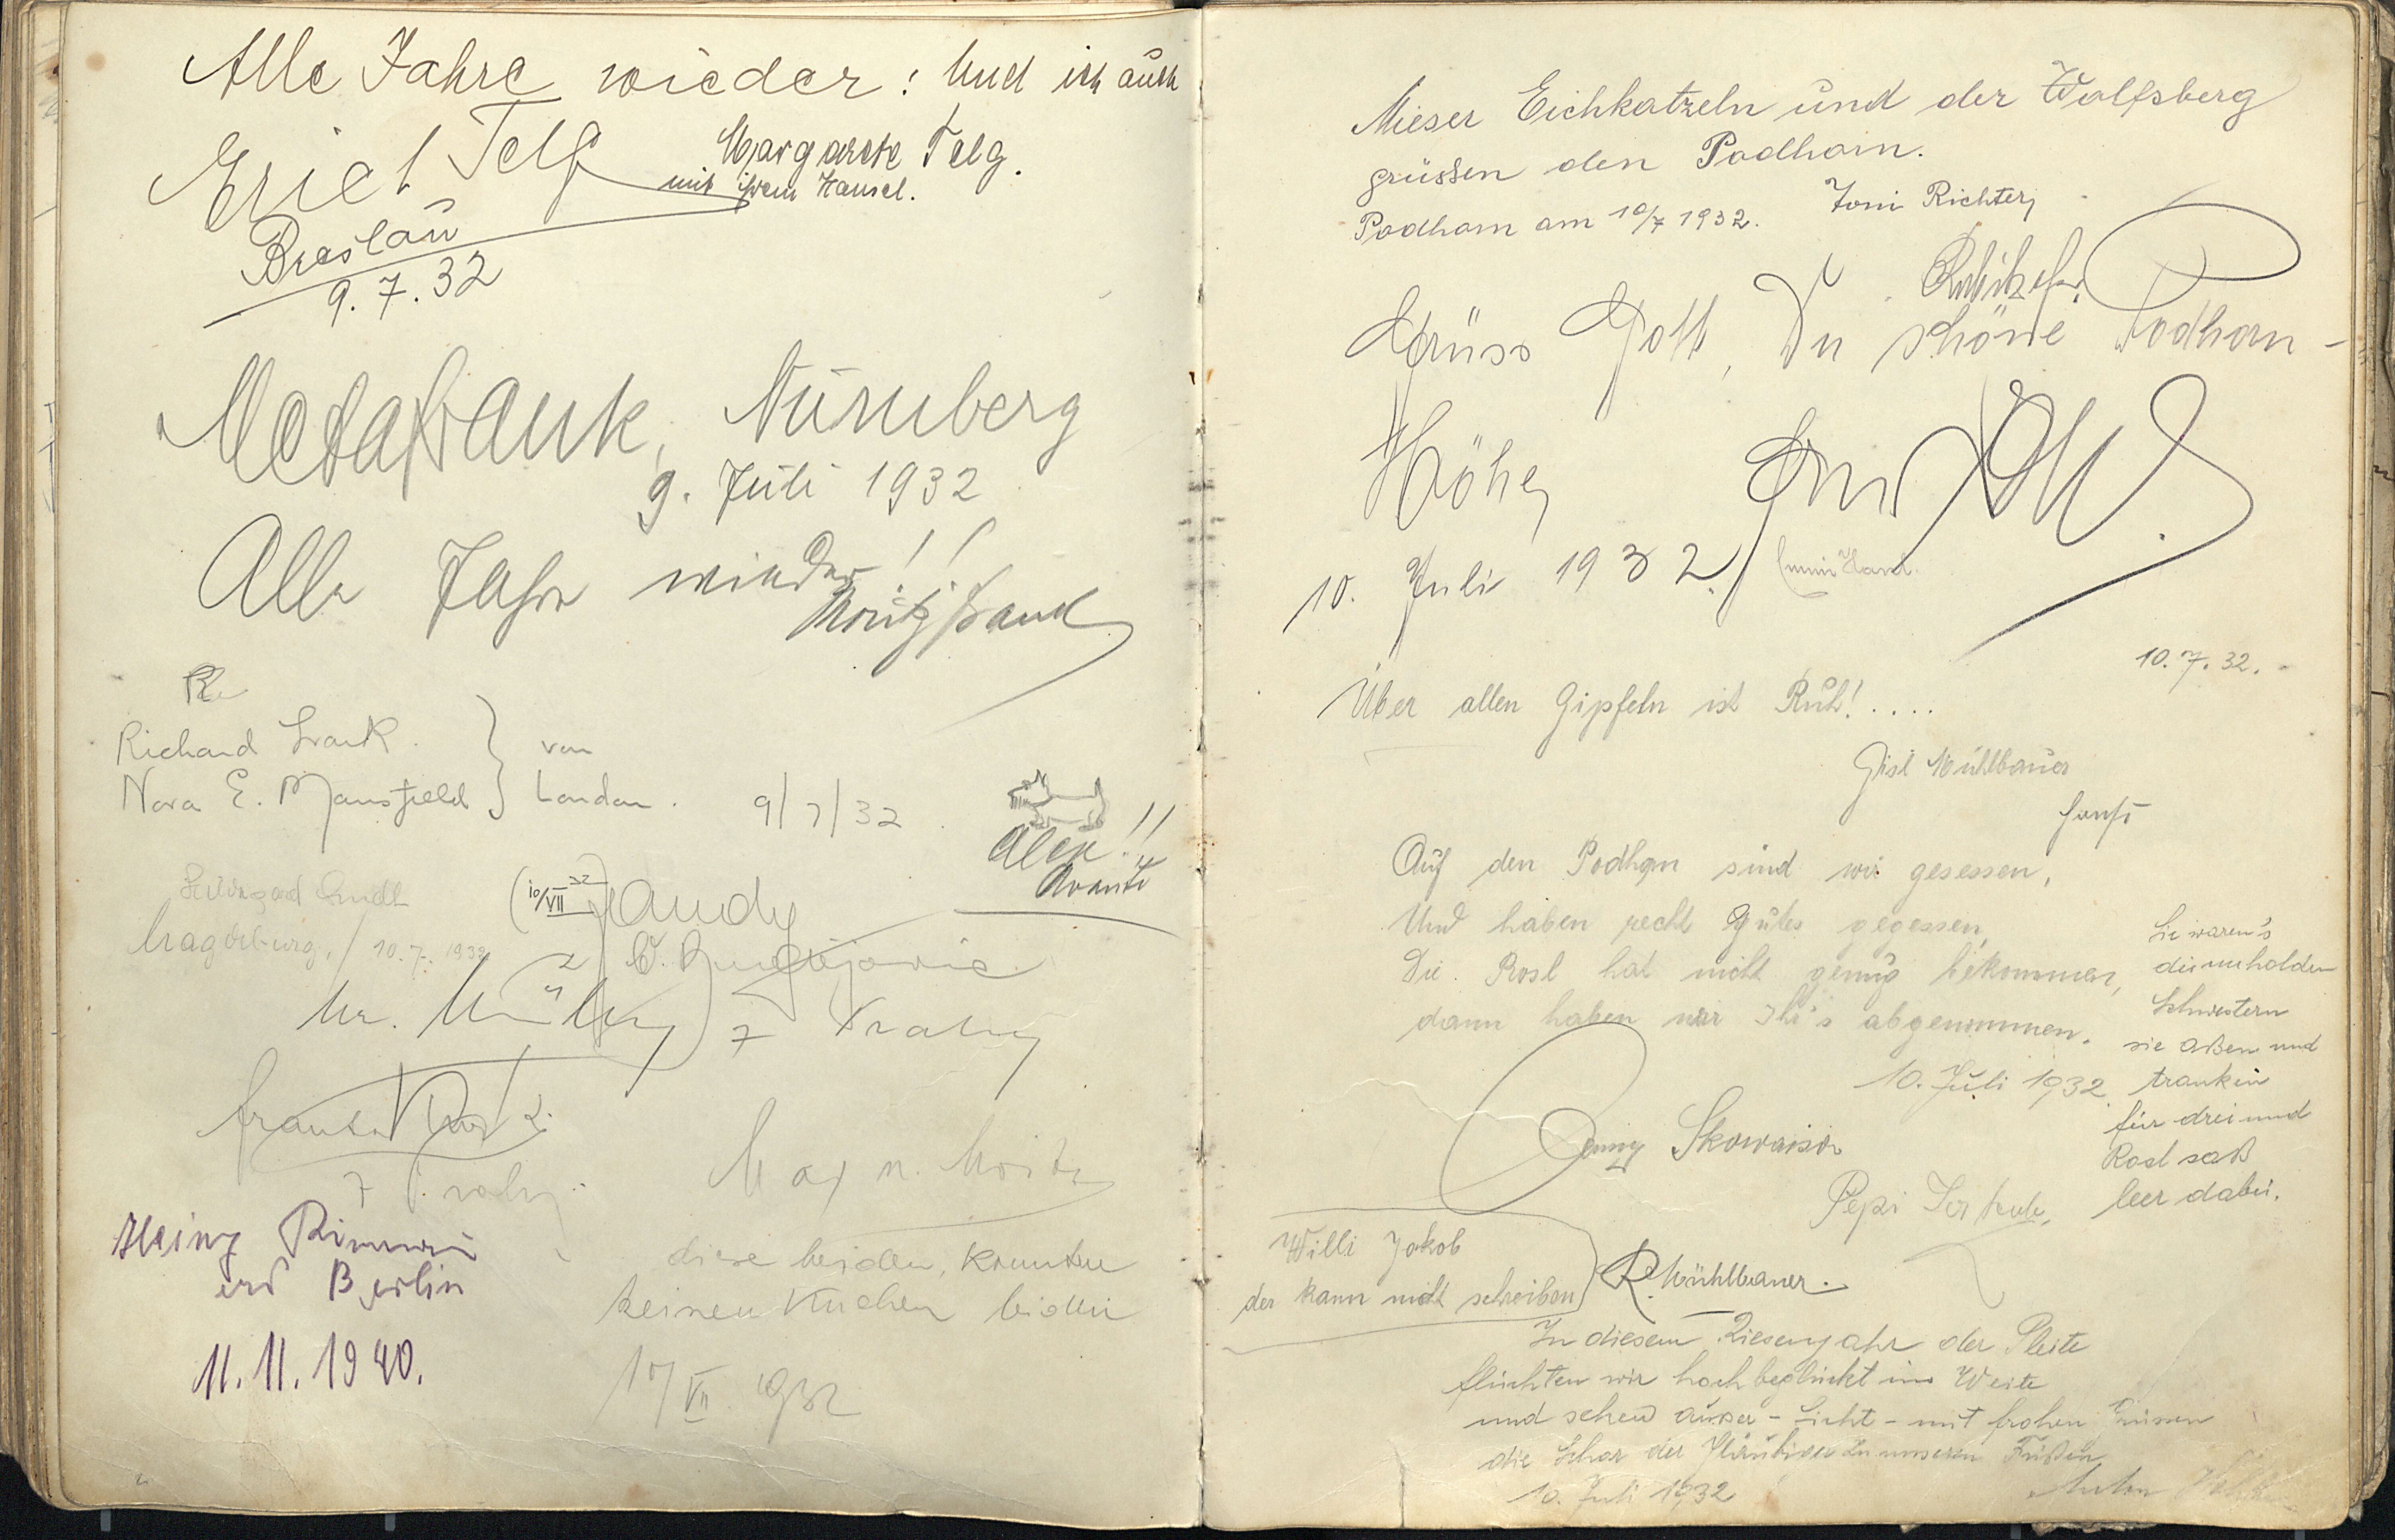 Alle Jahre wieder: Und ich auch
Erich Telg
Margarete Telg.
mit ihrem Hansel.
Breslau
9.7.32
Meta Frank, Nürnberg
9. Juli 1932
Alle Jahre wieder!!
Moritz Frank
Richard Frank
Nora E. Mansfield
von
London.
9/7/32
Alex!!
Hildegard
Magdeburg, 10.7.1932
10/VII 32
z Prahy
z Prahy
Max u. Moritz
diese beiden, konnten
keinen Kuchen leiden
10/VII 1932
Heinz
Berlin
11.11.1940.
Mieser Eichkatzeln und der Wolfsberg
grüssen den Podhorn.
Podhorn am 10/7 1932.
Toni Richter
Grüss Gott, Du schöne Podhorn-
Höhe,
10. Juli 1932.
10.7.32.
Über allen Gipfeln ist Ruh!....
Gisl Mühlbauer
Auf den Podhorn sind wir gesessen,
Und haben recht Gutes gegessen,
Die Rosl hat nicht genug bekommen,
dann haben wir Ihr's abgenommen.
10. Juli 1932.
Sie waren's
die unholden
Schwestern
sie aßen und
tranken
für drei und
Rosl saß
leer dabei.
Jenny
Pepi
Willi Jakob
der kann nicht schreiben
R. Mühlbauer.
In diesem Riesenjahr der Pleite
flüchten wir hochbeglückt ins Weite
und sehen ausser-Sicht-mit frohen Grüssen
die Schar der Gläubiger zu unseren Füßen
10. Juli 1932
Anton